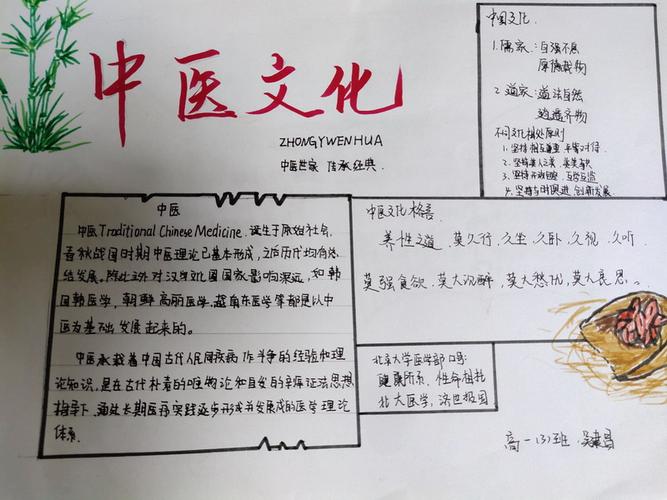 中医文化
ZHONGYWENHUA
中医世家 传承经典.
中国文化.
1.儒家:自强不息
厚德载物
2.道家:道法自然
逍遥齐物
不同文化相处原则
1.坚持相互尊重,平等对待.
2.坚持美人之美,美美与共
3.坚持开放包容,互学互鉴
4.坚持与时俱进,创新发展
中医
中医Traditional Chinese Medicine.诞生于原始社会,
春秋战国时期中医理论已基本形成,之后历代均有总
结发展。除此之外对汉字文化圈国家影响深远,如韩
国韩医学,朝鲜高丽医学,越南东医学等都是以中
医为基础发展起来的。
中医承载着中国古代人民同疾病作斗争的经验和理
论知识,是在古代朴素的唯物论和自发的辩证法思想
指导下,通过长期医疗实践逐步形成并发展成的医学理论
体系.
中医文化格言.
养性之道,莫久行,久坐,久卧,久视,久听.
莫强食饮,莫大沉醉,莫大愁忧,莫大哀思。
北京大学医学部口号:
健康所系,性命相托
北大医学,济世报国
高一(3)班